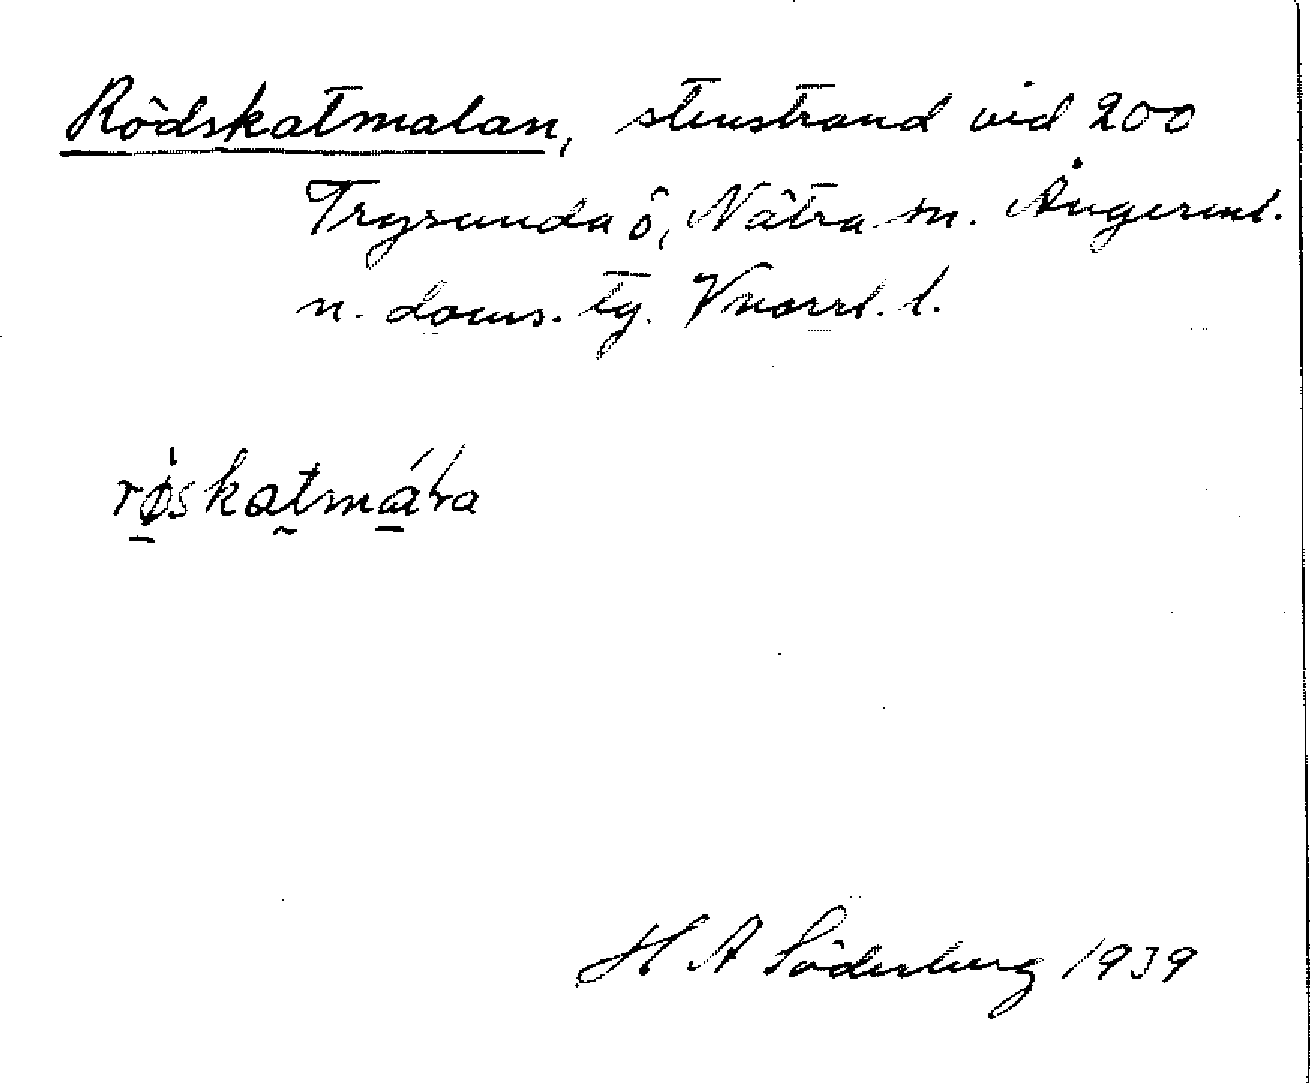 Rödskatmalan, stenstrand vid 200
Trysunda ö, Nätra sn. Ångerml.
n. doms. tg. Vnorrl. l.
røskatmáɽa
H A Söderberg 1939